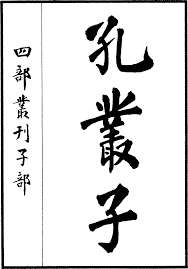 孔叢子
四部叢刊子部